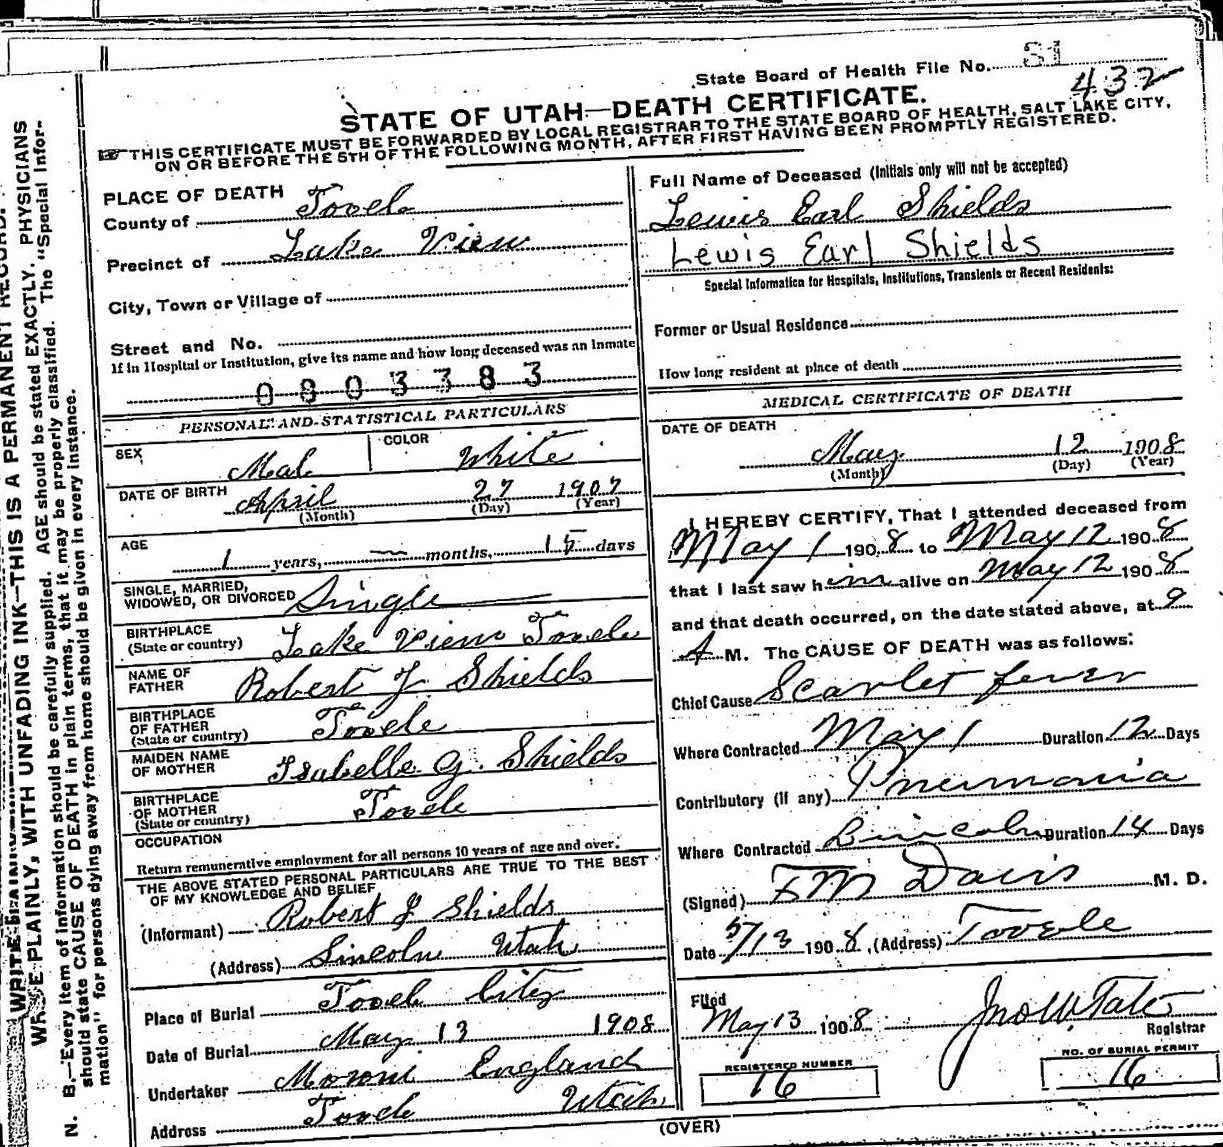 State Board of Health File No. 31
432
STATE OF UTAH—DEATH CERTIFICATE.
THIS CERTIFICATE MUST BE FORWARDED BY LOCAL REGISTRAR TO THE STATE BOARD OF HEALTH, SALT LAKE CITY,
ON OR BEFORE THE 5TH OF THE FOLLOWING MONTH, AFTER FIRST HAVING BEEN PROMPTLY REGISTERED.
PLACE OF DEATH
County of Tooele
Precinct of Lake View
City, Town or Village of
Street and No.
If in Hospital or Institution, give its name and how long deceased was an Inmate
0803383
PERSONAL AND STATISTICAL PARTICULARS
SEX Mal COLOR White
DATE OF BIRTH April 27 1907
(Month) (Day) (Year)
AGE 1 years, — months, 15 days
SINGLE, MARRIED,
WIDOWED, OR DIVORCED Single
BIRTHPLACE
(State or country) Lake View Tooele
NAME OF
FATHER Robert J Shields
BIRTHPLACE
OF FATHER
(State or country) Tooele
MAIDEN NAME
OF MOTHER Isabelle G. Shields
BIRTHPLACE
OF MOTHER
(State or country) Tooele
OCCUPATION
Return remunerative employment for all persons 10 years of age and over.
THE ABOVE STATED PERSONAL PARTICULARS ARE TRUE TO THE BEST
OF MY KNOWLEDGE AND BELIEF
(Informant) Robert J Shields
(Address) Lincoln Utah
Place of Burial Tooele City
Date of Burial May 13 1908
Undertaker Moroni England
Address Tooele Utah
Full Name of Deceased (Initials only will not be accepted)
Lewis Earl Shields
Lewis Earl Shields
Special Information for Hospitals, Institutions, Transients or Recent Residents:
Former or Usual Residence
How long resident at place of death
MEDICAL CERTIFICATE OF DEATH
DATE OF DEATH
May 12 1908
(Month) (Day) (Year)
I HEREBY CERTIFY, That I attended deceased from
May 1 1908 to May 12 1908
that I last saw him alive on May 12 1908
and that death occurred, on the date stated above, at 9
A M. The CAUSE OF DEATH was as follows:
Chief Cause Scarlet fever
Where Contracted May 1 Duration 12 Days
Contributory (if any) Pneumonia
Where Contracted Lincoln Duration 14 Days
(Signed) F M Davis M. D.
Date 5/13 1908, (Address) Tooele
Filed
May 13 1908 Jno W. Tate
Registrar
REGISTERED NUMBER
16
NO. OF BURIAL PERMIT
16
(OVER)
WRITE PLAINLY, WITH UNFADING INK—THIS IS A PERMANENT RECORD.
N. B.—Every item of information should be carefully supplied. AGE should be stated EXACTLY. PHYSICIANS
should state CAUSE OF DEATH in plain terms, that it may be properly classified. The "Special Infor-
mation" for persons dying away from home should be given in every instance.